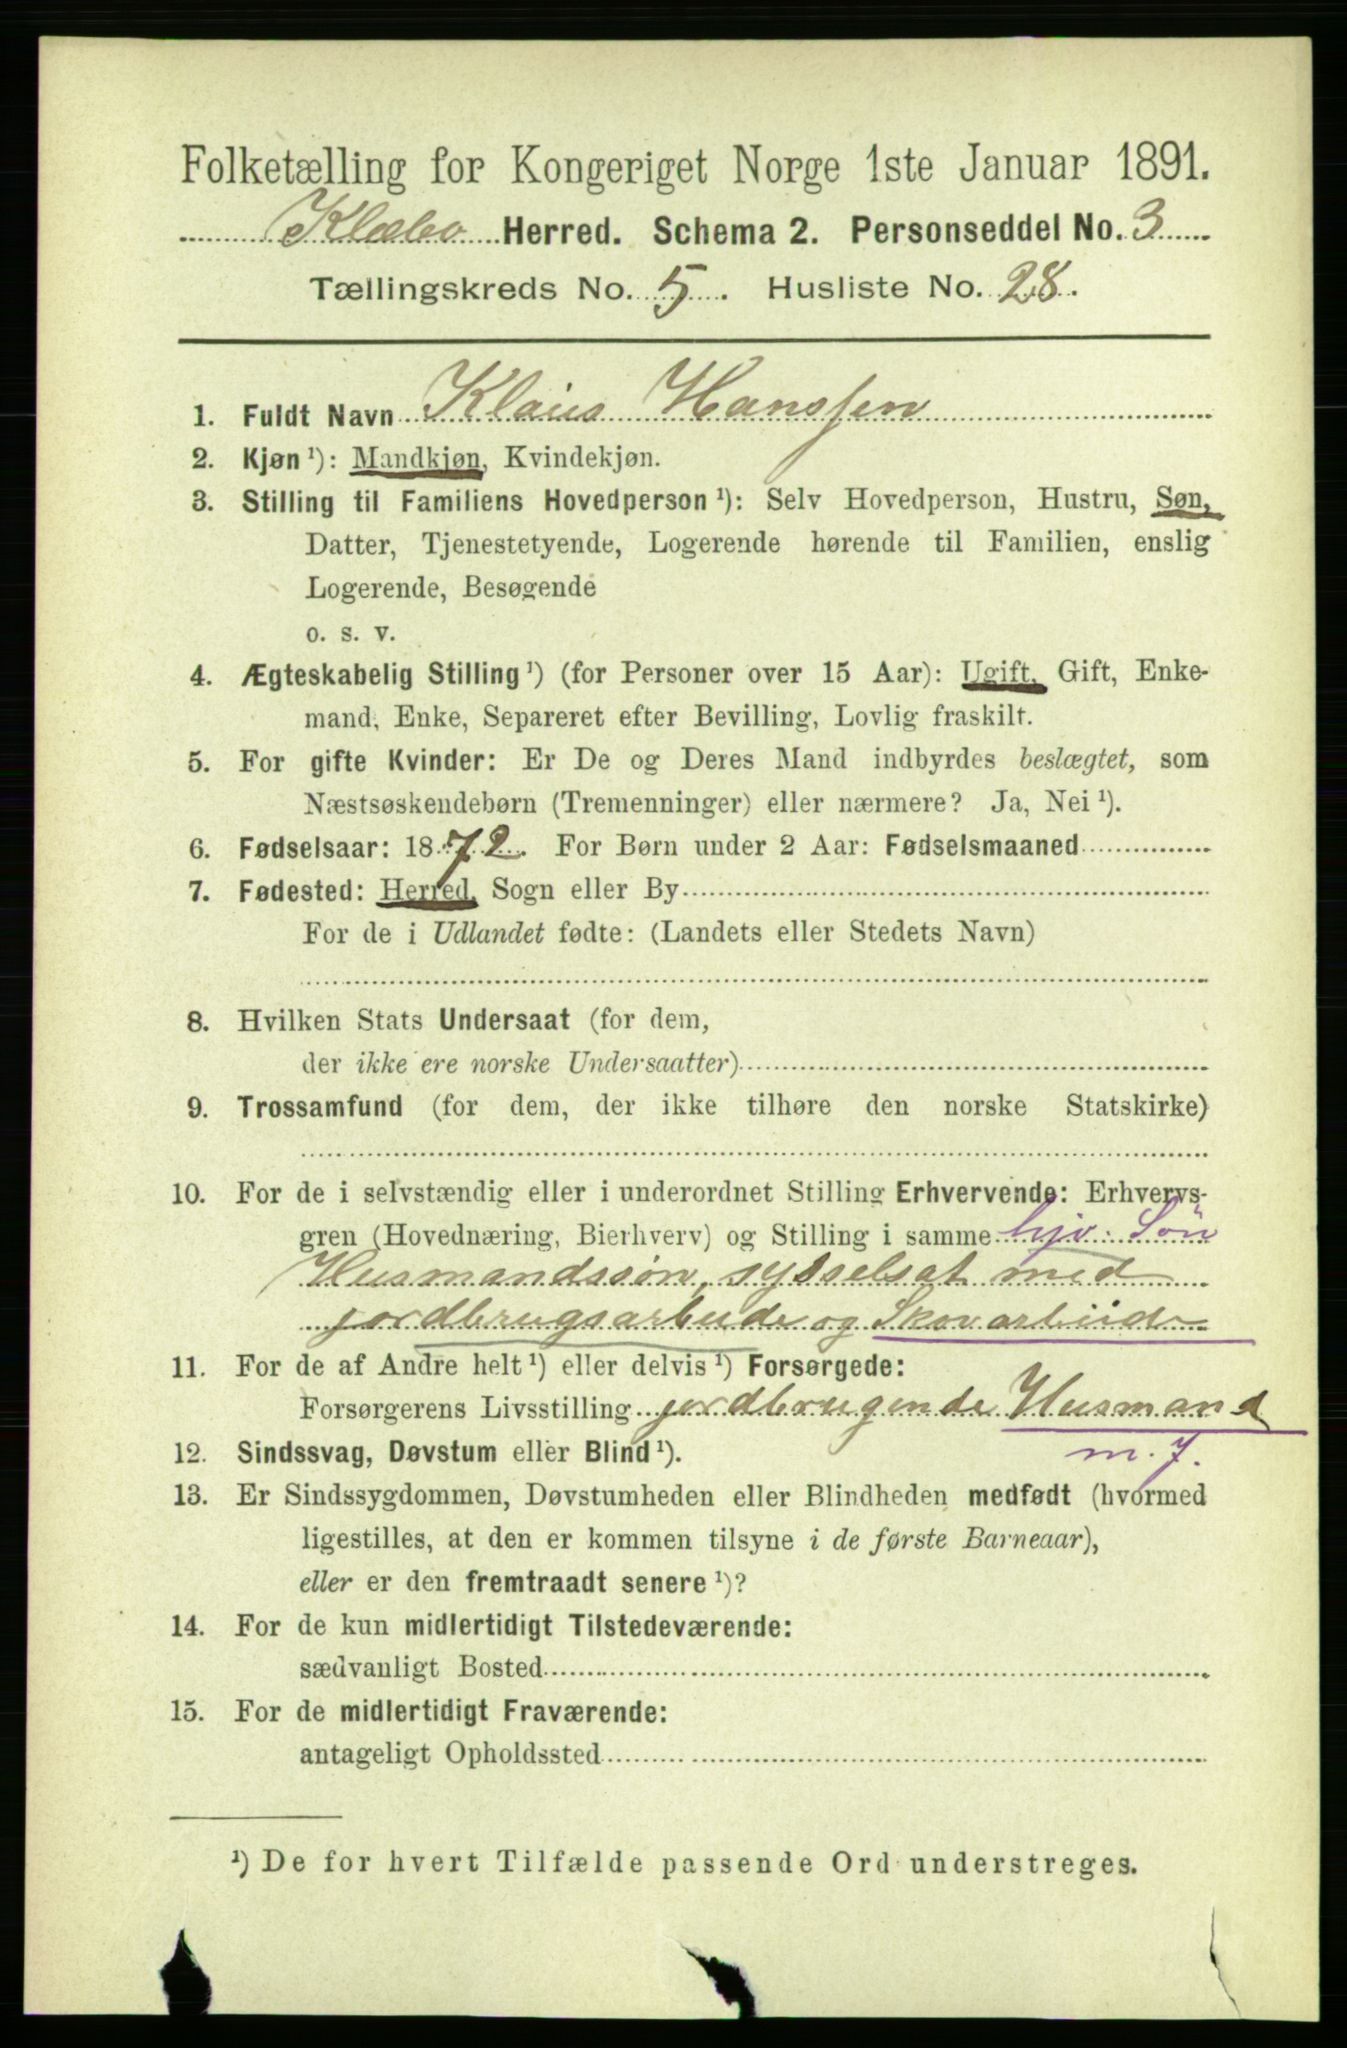 Folketælling for Kongeriget Norge 1ste Januar 1891.
Klæbo Herred. Schema 2. Personseddel No. 3
Tællingskreds No. 5. Husliste No. 28.
1. Fuldt Navn Klaus Hanssen
2. Kjøn ¹): Mandkjøn, Kvindekjøn.
3. Stilling til Familiens Hovedperson ¹): Selv Hovedperson, Hustru, Søn,
Datter, Tjenestetyende, Logerende hørende til Familien, enslig
Logerende, Besøgende
o. s. v.
4. Ægteskabelig Stilling ¹) (for Personer over 15 Aar): Ugift, Gift, Enke-
mand, Enke, Separeret efter Bevilling, Lovlig fraskilt.
5. For gifte Kvinder: Er De og Deres Mand indbyrdes beslægtet, som
Næstsøskendebørn (Tremenninger) eller nærmere? Ja, Nei ¹).
6. Fødselsaar: 1872. For Børn under 2 Aar: Fødselsmaaned
7. Fødested: Herred, Sogn eller By
For de i Udlandet fødte: (Landets eller Stedets Navn)
8. Hvilken Stats Undersaat (for dem,
der ikke ere norske Undersaatter)
9. Trossamfund (for dem, der ikke tilhøre den norske Statskirke)
10. For de i selvstændig eller i underordnet Stilling Erhvervende: Erhvervs-
gren (Hovednæring, Bierhverv) og Stilling i samme hjv. Søn
Husmandssøn, sysselsat med
jordbrugsarbeide og Skovarbeide
11. For de af Andre helt ¹) eller delvis ¹) Forsørgede:
Forsørgerens Livsstilling jordbrugende Husmand
m. J.
12. Sindssvag, Døvstum eller Blind ¹).
13. Er Sindssygdommen, Døvstumheden eller Blindheden medfødt (hvormed
ligestilles, at den er kommen tilsyne i de første Barneaar),
eller er den fremtraadt senere ¹)?
14. For de kun midlertidigt Tilstedeværende:
sædvanligt Bosted
15. For de midlertidigt Fraværende:
antageligt Opholdssted
¹) De for hvert Tilfælde passende Ord understreges.